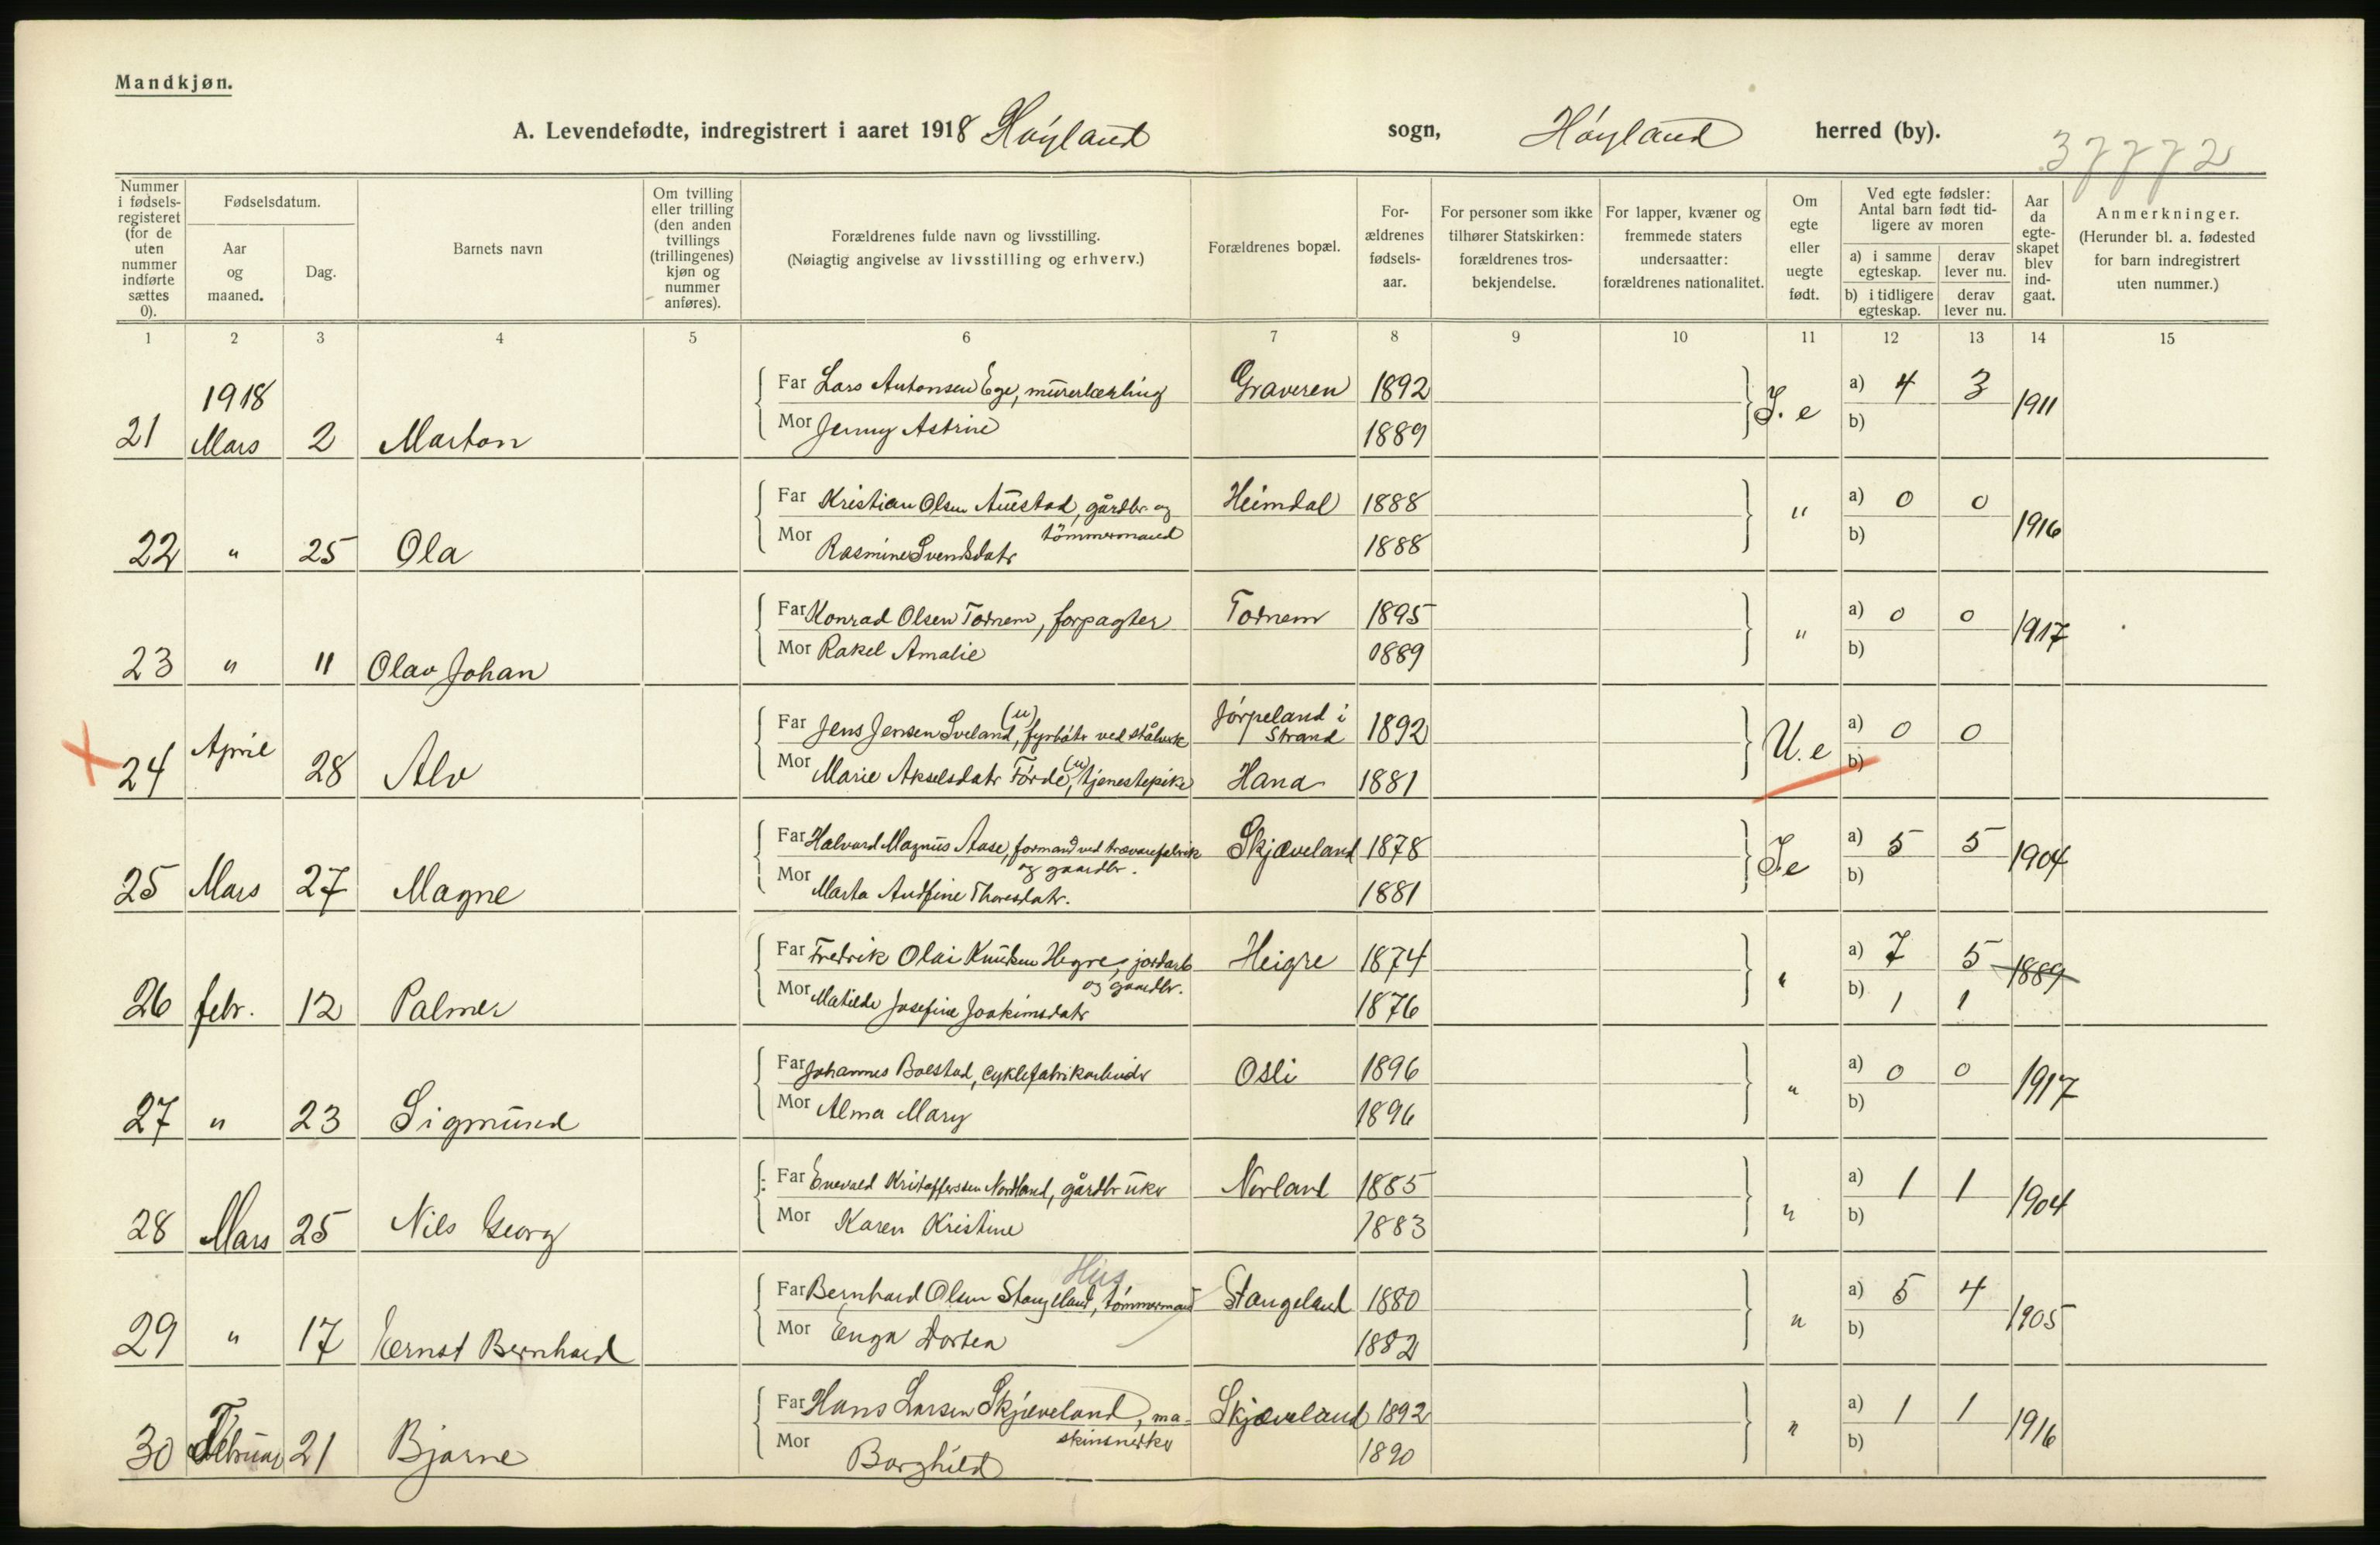 Mandkjøn.
A. Levendefødte, indregistrert i aaret 1918 Høyland sogn, Høyland herred (by).
37772
Nummer i fødselsregisteret (for de uten nummer indførte sættes 0).
Fødselsdatum.
Aar og maaned.
Dag.
Barnets navn
Om tvilling eller trilling (den anden tvillings (trillingenes) kjøn og nummer anføres).
Forældrenes fulde navn og livsstilling.
(Nøiagtig angivelse av livsstilling og erhverv.)
Forældrenes bopæl.
Forældrenes fødselsaar.
For personer som ikke tilhører Statskirken: forældrenes trosbekjendelse.
For lapper, kvæner og fremmede staters undersaatter: forældrenes nationalitet.
Om egte eller uegte født.
Ved egte fødsler: Antal barn født tidligere av moren
a) i samme egteskap. derav lever nu.
b) i tidligere egteskap. derav lever nu.
Aar da egteskapet blev indgaat.
Anmerkninger.
(Herunder bl. a. fødested for barn indregistrert uten nummer.)
1 2 3 4 5 6 7 8 9 10 11 12 13 14 15
Far Lars Antonsen Ege, murerlærling Graveren 1892 a) 4 3
21 1918 Mars 2 Marton J. e 1911
Mor Jenny Astrine 1889 b)
Far Kristian Olsen Austad, gårdbr. og tømmermand Heimdal 1888 a) 0 0
22 " 25 Ola " 1916
Mor Rasmine Svendsdatr 1888 b)
Far Konrad Olsen Tornem, forpagter Tornem 1895 a) 0 0
23 " 11 Olav Johan " 1917
Mor Rakel Amalie 1889 b)
Far Jens Jensen Sveland (u), fyrbøtr ved stålverk Jørpeland i Strand 1892 a) 0 0
24 April 28 Alv U. e
Mor Marie Akselsdatr Førde (u), tjenestepike Hana 1881 b)
Far Halvard Magnus Aase, formand ved trævarefabrik og gaardbr. Skjæveland 1878 a) 5 5
25 Mars 27 Magne J. e 1904
Mor Marta Andfine Thoresdatr. 1881 b)
Far Fredrik Olai Knudsen Hegre, jordarb og gaardbr. Heigre 1874 a) 7 5
26 febr. 12 Palmer " 1889
Mor Matilde Josefine Joakimsdatr 1876 b) 1 1
Far Johannes Bolstad, cyklefabrikarbeidr Osli 1896 a) 0 0
27 " 23 Sigmund " 1917
Mor Alma Mary 1896 b)
Far Enevald Kristoffersen Nordland, gårdbruker Norland 1885 a) 1 1
28 Mars 25 Nils Georg " 1904
Mor Karen Kristine 1883 b)
Hus
Far Bernhard Olsen Stangeland, tømmermand Stangeland 1880 a) 5 4
29 " 17 Ernst Bernhard " 1905
Mor Enga Dortea 1882 b)
Far Hans Larsen Skjæveland, maskinsnedker Skjæveland 1892 a) 1 1
30 Februar 21 Bjarne " 1916
Mor Borghild 1890 b)